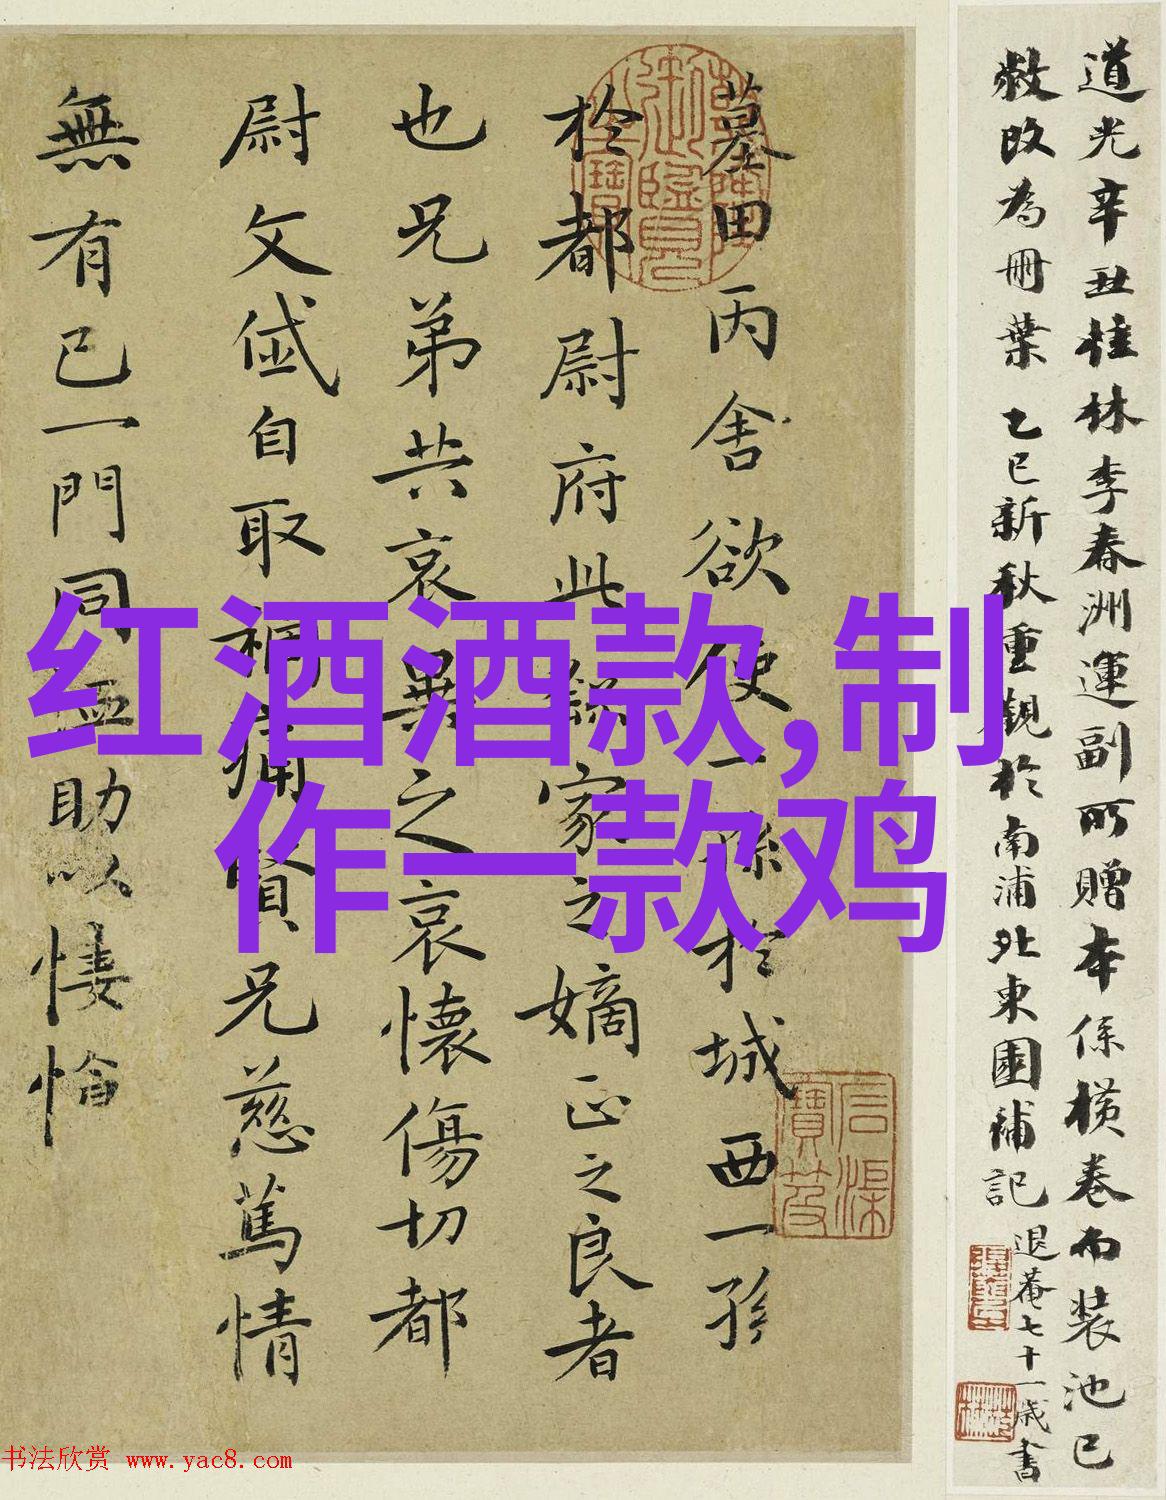 道光辛丑桂林李春洲運副所贈本係横卷而装池已
敝改為冊葉 乙巳新秋重觀於南浦北東園補記
退菴七十一歲書
墓田丙舍欲使一孫於城西一孫
於都尉府此繇家之嫡正之良者
也兄弟共哀異之哀懷傷切都
尉文岱自取禍痛賢兄慈篤情
無有已一門同恤助以悽愴
红酒酒款,制
作一款鸡
书法欣赏 www.yac8.com